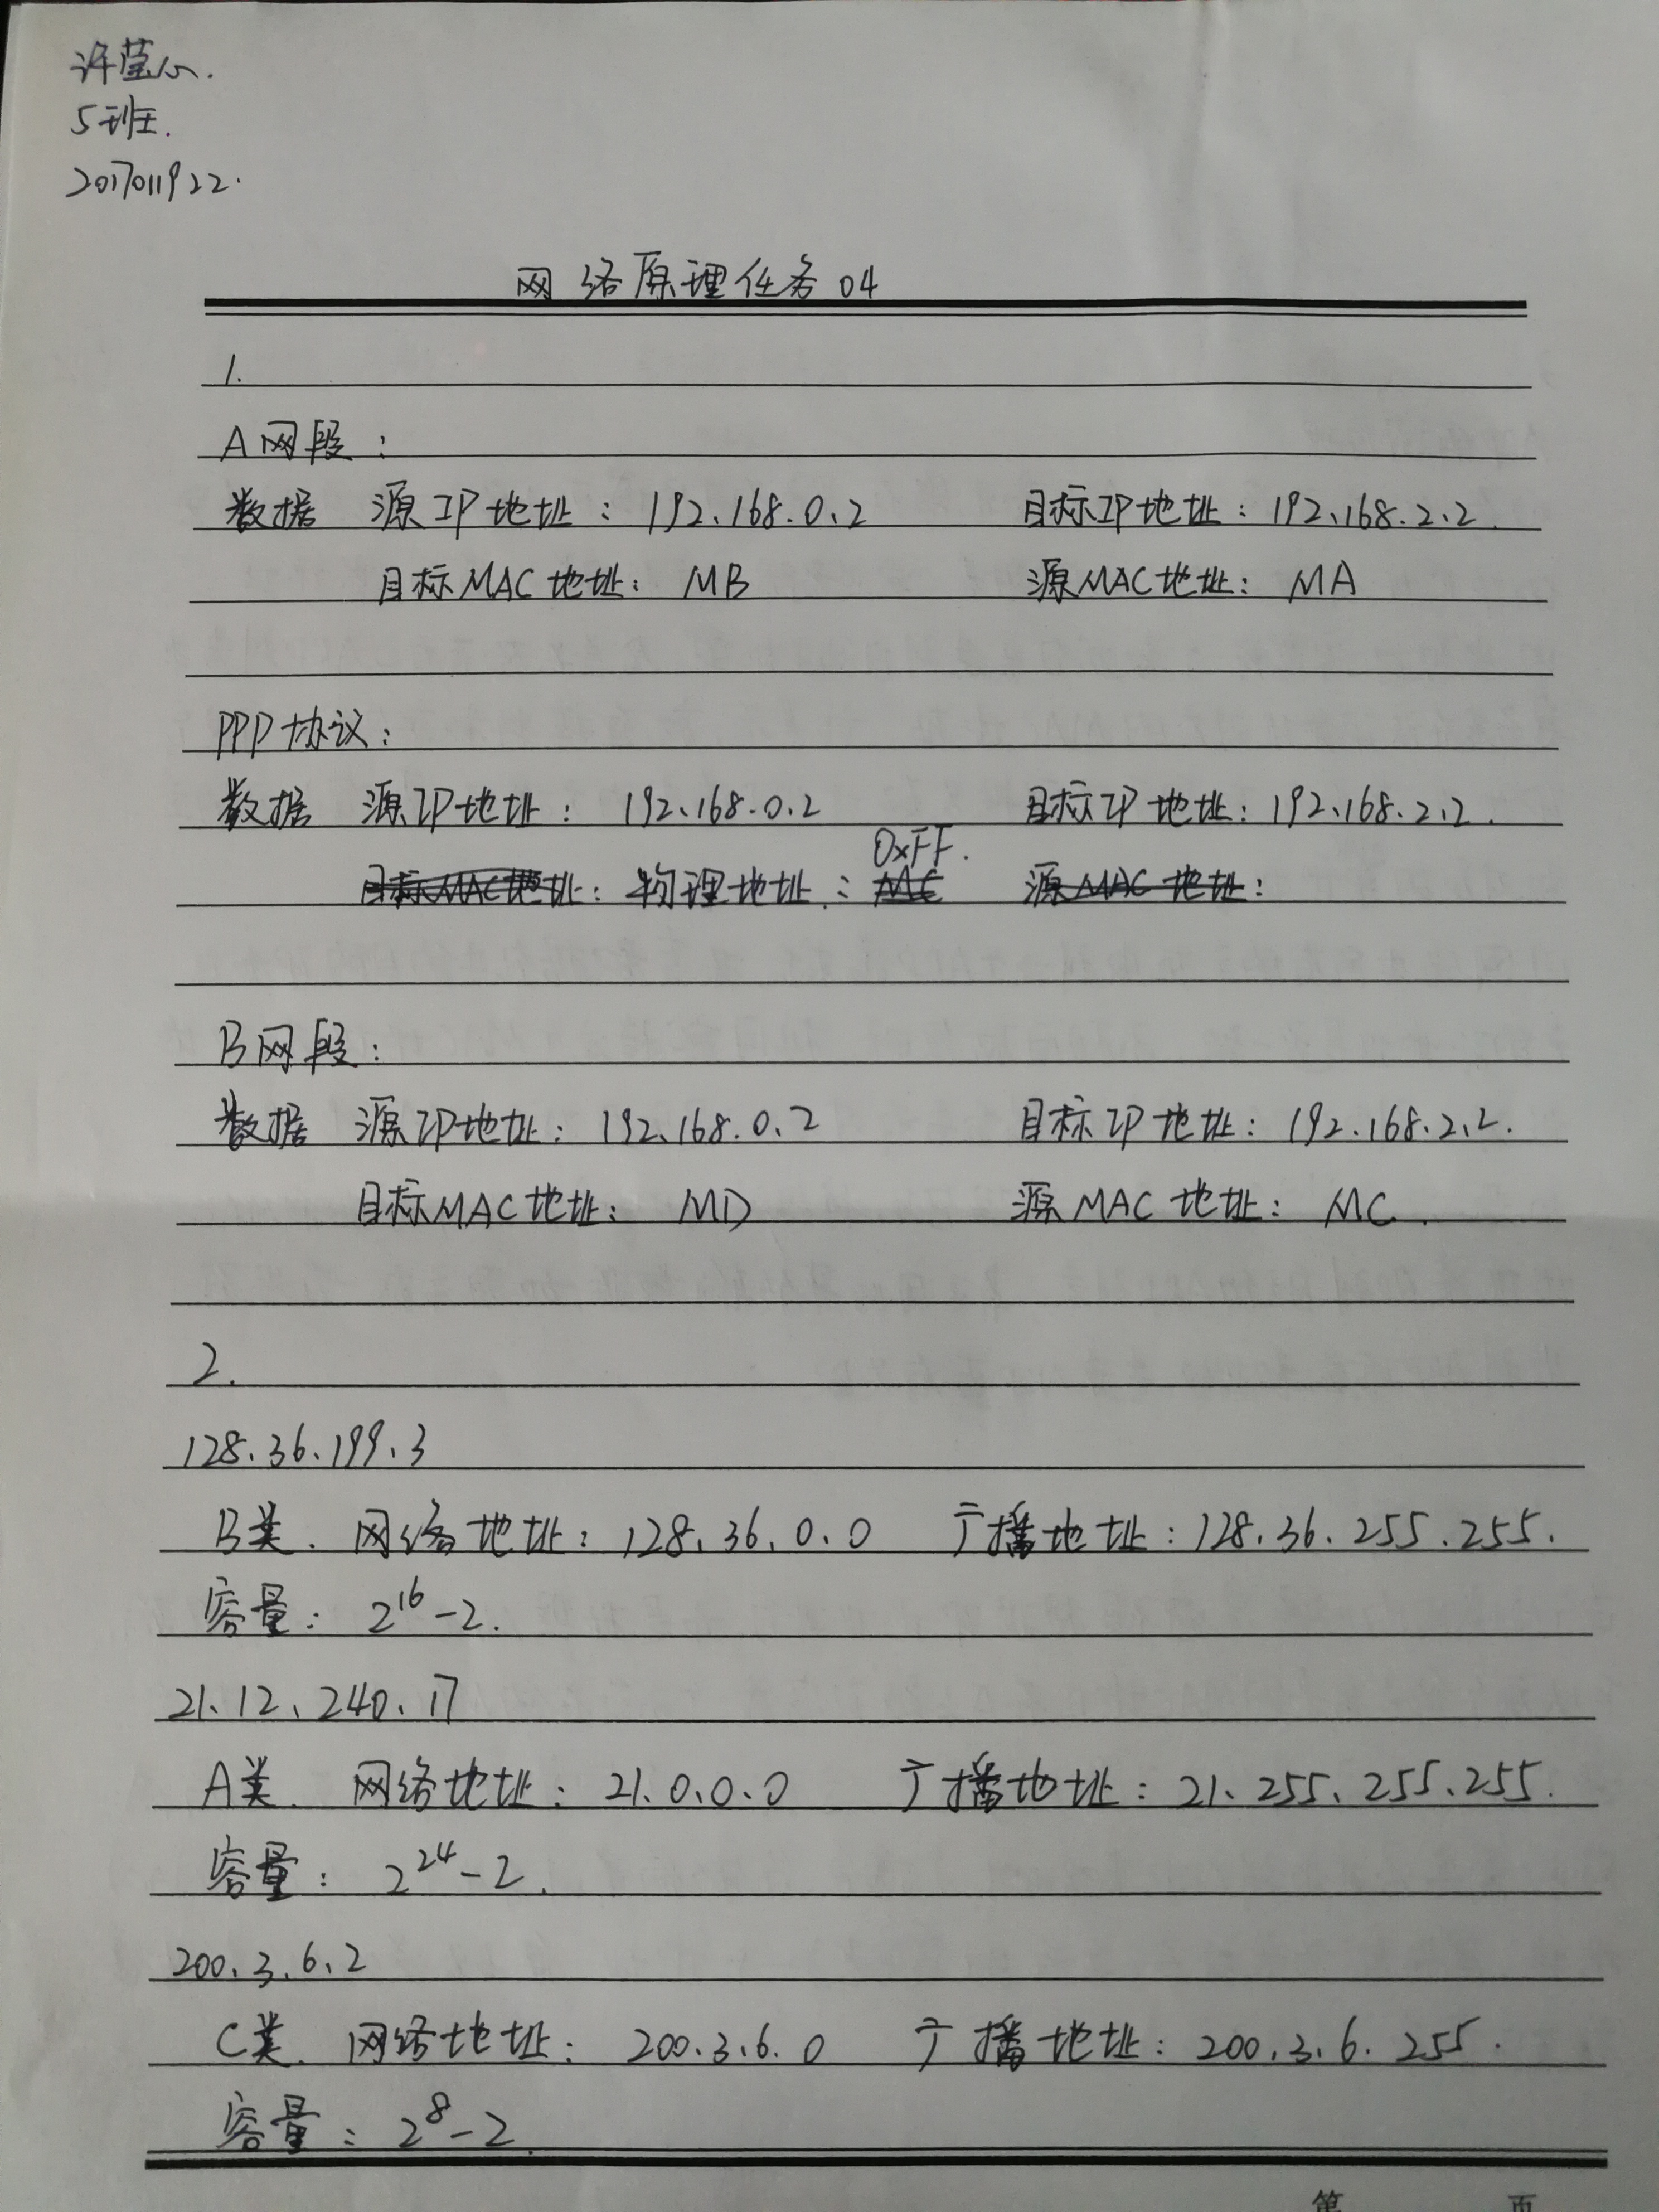 许莹心.
5班.
2017011922.
网络原理任务04
1.
A网段:
数据 源IP地址: 192.168.0.2 目标IP地址: 192.168.2.2.
目标MAC地址: MB 源MAC地址: MA
PPP协议:
数据 源IP地址: 192.168.0.2 目标IP地址: 192.168.2.2.
0xFF.
目标MAC地址: 物理地址: MC 源MAC地址:
B网段:
数据 源IP地址: 192.168.0.2 目标IP地址: 192.168.2.2.
目标MAC地址: MD 源MAC地址: MC.
2.
128.36.199.3
B类. 网络地址: 128.36.0.0 广播地址: 128.36.255.255.
容量: 2^16-2.
21.12.240.17
A类. 网络地址: 21.0.0.0 广播地址: 21.255.255.255.
容量: 2^24-2.
200.3.6.2
C类. 网络地址: 200.3.6.0 广播地址: 200.3.6.255.
容量: 2^8-2.
第 页